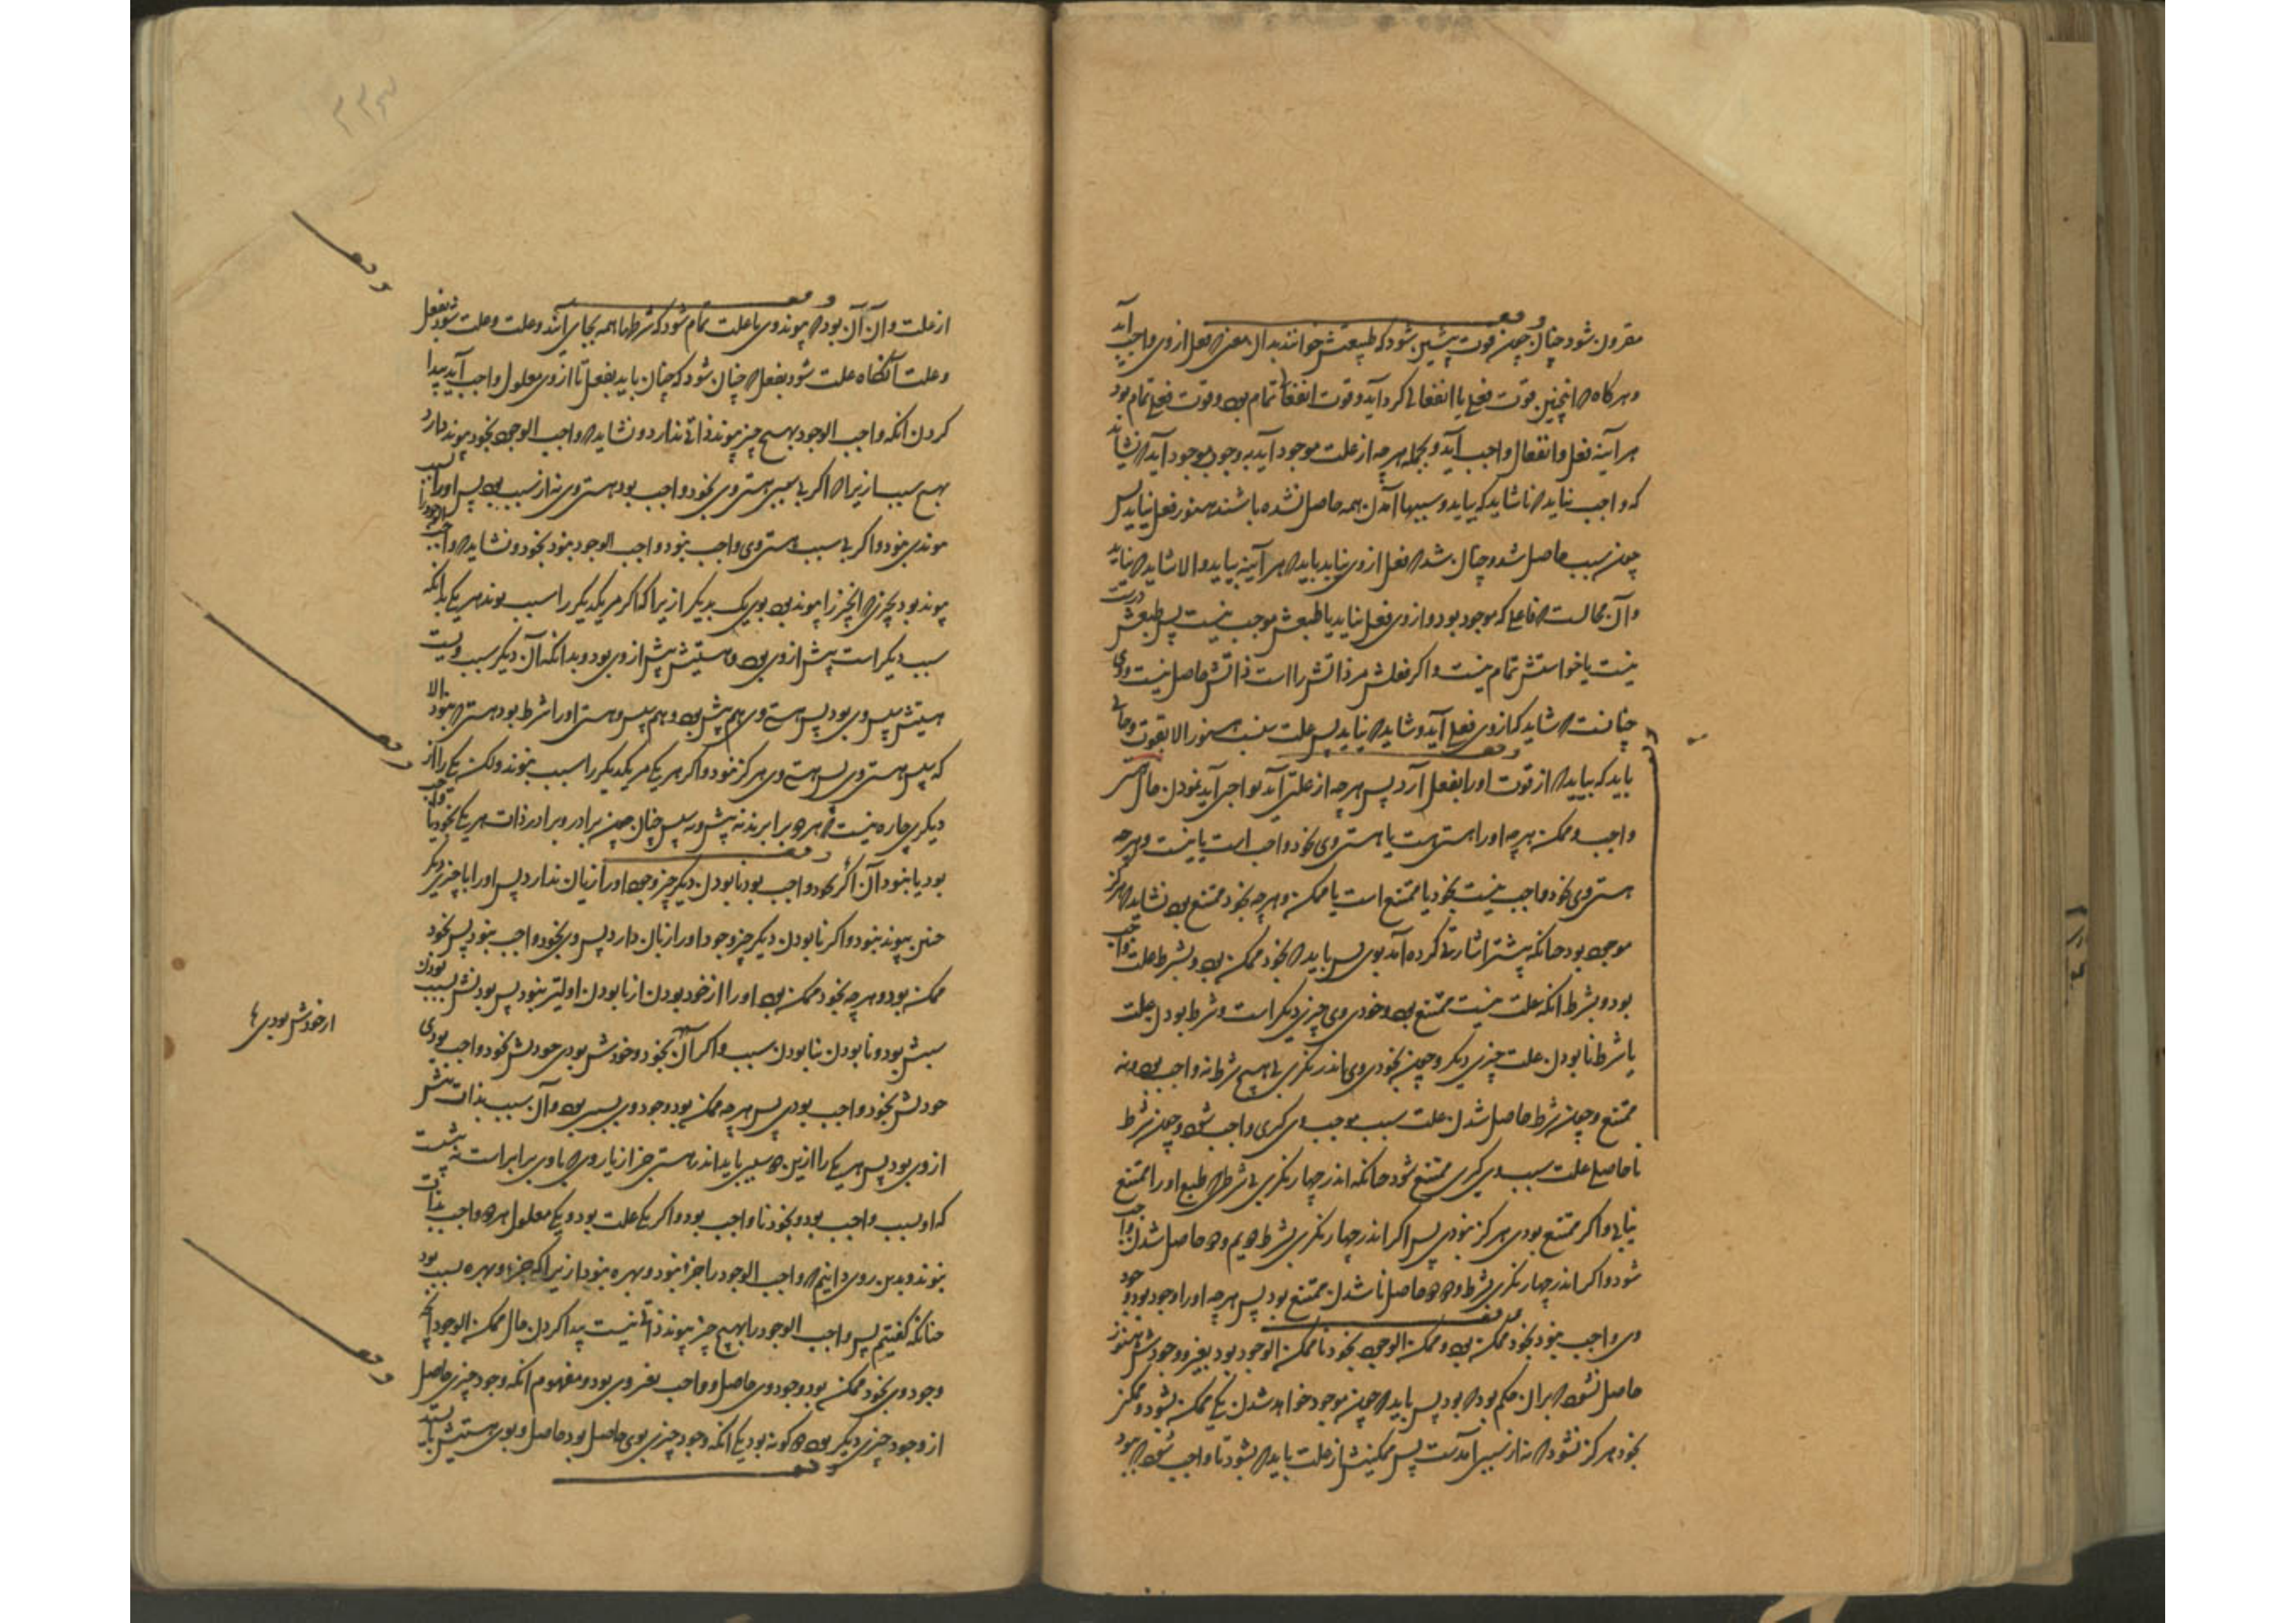 مقرون شود چنان چون قوت پیشین شود که طبیعتش خوانند بدان معنی که فعل از وی واجب آید
و هر گاه که اینچنین قوت فعلی یا انفعالی گرد آید و قوت انفعالی تمام بود و قوت فعلی تمام بود
هر آینه فعل و انفعال واجب آید و بجمله هر چه از علت موجود آید به وجوب موجود آید که تا نشاید
که واجب نیاید که تا شاید که بیاید و سببها آمدن همه حاصل نشده باشند هنوز فعل نیاید پس
چون سبب حاصل شد و چنان شد که فعل از وی بیاید باید که هر آینه بیاید و الا شاید که نیاید
و آن محالست که فاعلی که موجود بود و از وی فعل نیاید یا طبعش موجب نیست پس طبعش درست
نیست یا خواستش تمام نیست و اگر فعلش مر ذاتش را است ذاتش حاصل نیست و وی
چنانست که شاید که از وی فعل آید و شاید که نیاید پس علت نیست هنوز الا بقوت و حالی
باید که بیاید که از قوت او را بفعل آرد پس هر چه از علتی آید بواجبی آید نمودن حال هستی
واجب و ممکن هر چه او را هستی هست یا هستی وی بخود واجب است یا نیست و هر چه
هستی وی بخود واجب نیست بخود یا ممتنع است یا ممکن و هر چه بخود ممتنع بود نشاید که هرگز
موجود بود چنانکه پیشتر اشارتی کرده آمد بوی پس باید که بخود ممکن بود و بشرط علت واجب
بود و بشرط آنکه علت نیست ممتنع بود و خودی وی چیزی دیگر است و شرط بودن علت
یا شرط نابودن علت چیزی دیگر و چون بخودی وی اندر نگری بی هیچ شرط نه واجب بود و نه
ممتنع و چون شرط حاصل شدن علت سبب موجب وی گیری واجب شود و چون شرط
نا حاصلی علت سبب وی گیری ممتنع شود چنانکه اندر چهار نگری بی شرطی که طبع او را ممتنع
نیابی و اگر ممتنع بودی هرگز نبودی پس اگر اندر چهار نگری بشرط دویم و دو حاصل شدن واجب
شود و اگر اندر چهار نگری بشرط دو دو حاصل ناشدن ممتنع بود پس هر چه او را وجود بود و وجود
وی واجب نبود بخود ممکن بود و ممکن الوجود بخود نا ممکن الوجود بود بغیر و وجودش هنوز
حاصل نشود که بران حکم بود که بود پس باید که چون موجود خواهد شدن یکی ممکن بشود و ممکن
بخود هرگز نشود که نه از سببی آمدست پس ممکنیش از علت باید که بشود تا واجب شود که بود
۲۲۳
از علت و آن آن بود که پیوند وی با علت تمام شود که شرطها همه بجای آیند و علت و علت شود بفعل
و علت آنگاه علت شود بفعل که چنان شود که چنان باید بفعل تا از وی معلول واجب آید پیدا
کردن آنکه واجب الوجود بهیچ چیز پیوند ذاتی ندارد و نشاید که واجب الوجود بخود پیوند دارد
بهیچ سبب ازیرا که اگر بی سببی هستی وی بخود واجب بود هستی وی نه از سبب بود پس او را بسبب
پیوندی نبود و اگر بی سبب هستی وی واجب نبود واجب الوجود نبود بخود و نشاید که واجب الوجود را
پیوند بود بچیزی که آنچیز را پیوند بود بوی یک بدیگر ازیراکه اگر مر یکدیگر را سبب بوند هر یکی بدانکه
سبب دیگر است پیش از وی بود و هستیش پیش از وی بود و بدانکه آن دیگر سبب ویست
هستیش پس وی بود پس هستی وی هم پیش بود و هم پس و هستی او را شرط بود هستی که نبود الا
که پس هستی وی پس هستی وی هرگز نبود و اگر هر یکی مر یکدیگر را سبب نبوند ولکن یکی را از
دیگری چاره نیست که هر دو برابرند نه پیش و نه سپس چنان چون برادر و برادر ذات هر یکی بخود یا واجب
بود یا نبود آن اگر بخود واجب بود نابودن دیگر چیز وجود او را زیان ندارد پس او را با چیزی دیگر
چنین پیوند نبود و اگر نابودن دیگر چیز وجود او را زیان دارد پس وی بخود واجب نبود پس بخود
ممکن بود و هر چه بخود ممکن بود او را از خود بودن از نابودن اولیتر نبود پس بودنش بسبب بودن
سببش بود و نابودن بنابودن سبب و اگر آن بخود و خودش بودی خودش بخود واجب بودی
از خودش بودی ها
خودش بخود واجب بودی پس هر چه ممکن بود وجود وی بسببی بود و آن سبب بذات پیش
از وی بود پس هر یکی را ازین دو سببی باید اندر هستی جز از یار وی که با وی برابر است نه پیشست
که او بسبب واجب بود و بخود نا واجب بود و اگر یکی علت بود و یکی معلول هر دو واجب بذات
نبوند و بدین روی دانیم که واجب الوجود را جزء نبود و بهره نبود ازیراکه جزء و بهره سبب بود
چنانکه گفتیم پس واجب الوجود را بهیچ چیز پیوند ذاتی نیست پیدا کردن حال ممکن الوجود آنچه
وجود وی بخود ممکن بود وجود وی حاصل و واجب بغیر وی بود و مفهوم آنکه وجود چیزی حاصل
از وجود چیزی دیگر بود دو گونه بود یکی آنکه وجود چیزی بوی حاصل بود حاصل و بوی هستیش